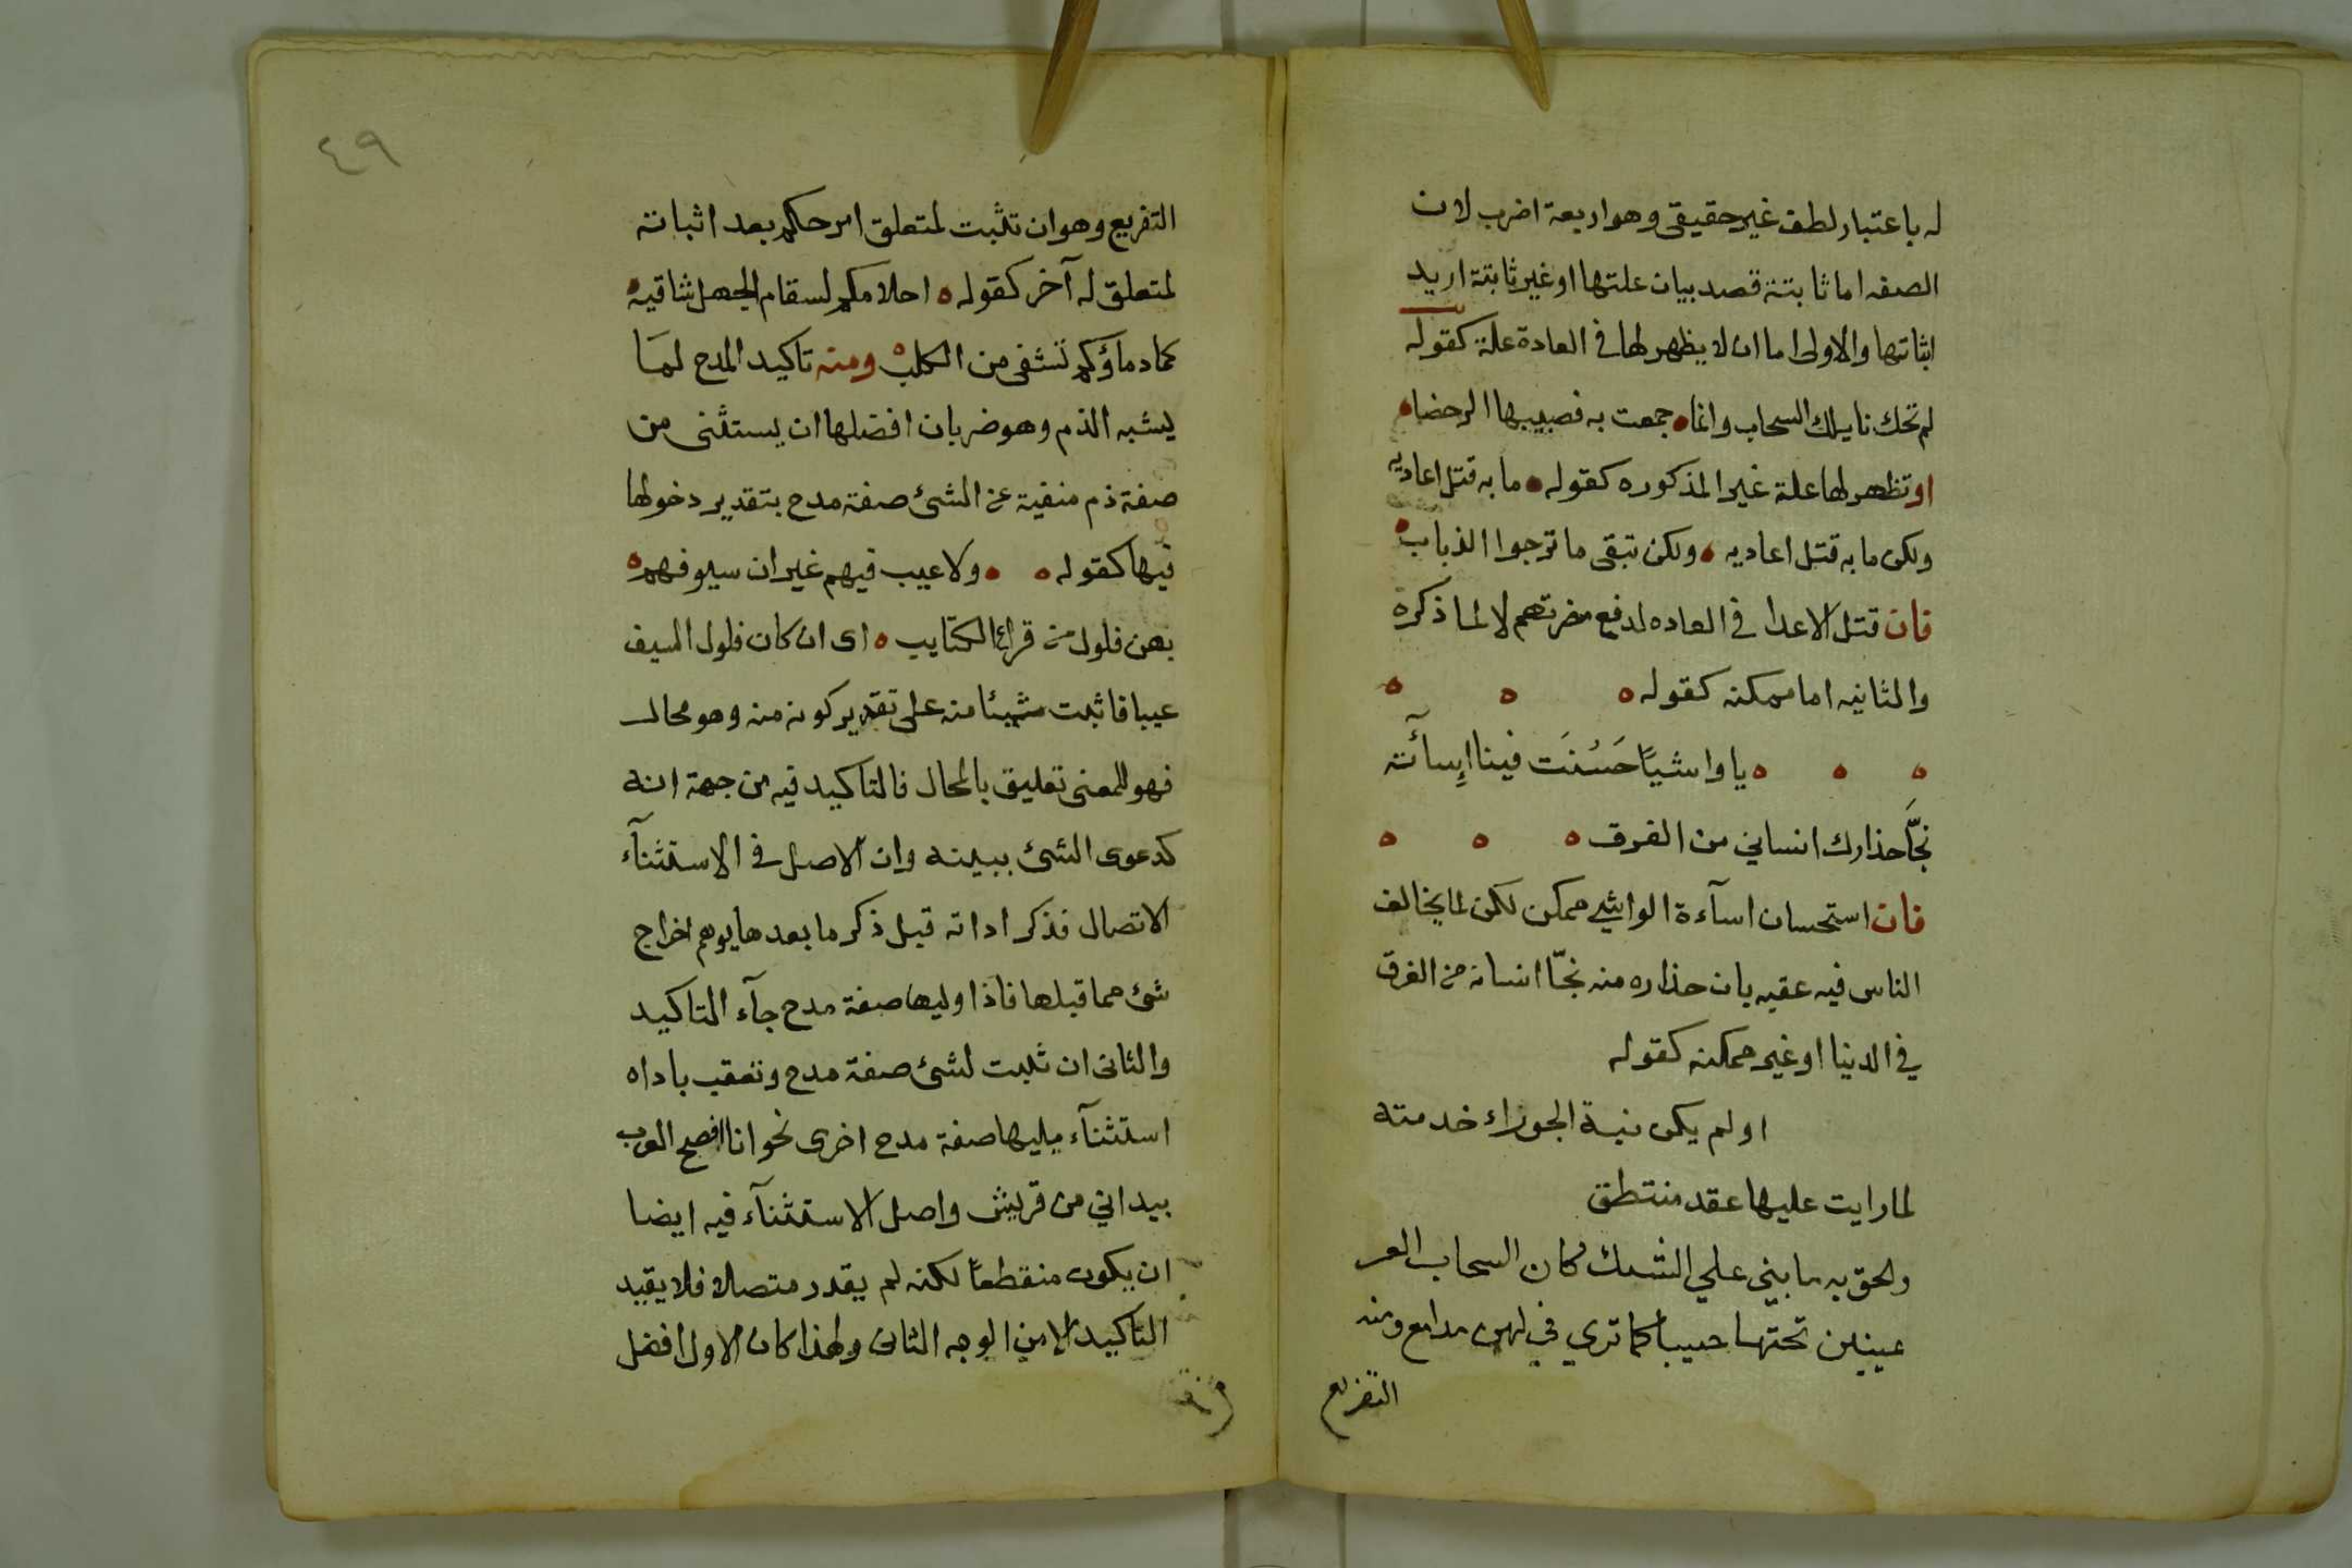 له باعتبار لطف غير حقيقى وهو اربعة اضرب لان
الصفه اما ثابتة قصد بيان علتها او غير ثابتة اريد
اثباتها والاولى اما ان لا يظهر لها فى العادة علة كقوله
لم تحك نايلك السحاب وانما جمعت به فصبيبها الرحضاء
او تظهر لها علة غير المذكوره كقوله ما به قتل اعاديه
ولكن ما به قتل اعاديه ولكن تبقى ما ترجوا الذباب
فان قتل الاعدا فى العاده لدفع مضرتهم لا لما ذكره
والثانيه اما ممكنه كقوله
يا واشيًا حَسُنَت فينا اِسآئته
نجَّا حذارك انساني من الغرق
فان استحسان اسآءة الواشي ممكن لكن لما يخالف
الناس فيه عقبه بان حذاره منه نجّا انسانه من الغرق
في الدنيا او غير ممكنه كقوله
او لم يكن نية الجوزاء خدمته
لما رايت عليها عقد منتطق
ولحق به ما بني علي الشك كان السحاب الغر
غيبين تحتها حبيبا كما تري في لهن مدامع ومنه
التفريع
٤٩
التفريع وهو ان تثبت لمتعلق امر حكم بعد اثباته
لمتعلق له آخر كقوله احلامكم لسقام الجهل شاقية
كما دماؤكم تشفى من الكلب ومنه تاكيد المدح لمَا
يشبه الذم وهو ضربان افضلها ان يستثنى من
صفة ذم منفية عن الشئ صفة مدح بتقدير دخولها
فيها كقوله ولا عيب فيهم غير ان سيوفهم
بهن فلول من قراع الكتايب اى ان كان فلول السيف
عيبا فاثبت شيئا منه على تقدير كونه منه وهو محال
فهو للمعنى تعليق بالمحال فالتاكيد فيه من جهة انه
كدعوى الشئ ببينه وان الاصل فى الاستثنآء
الاتصال فذكر اداته قبل ذكر ما بعدها يوهم اخراج
شئ مما قبلها فاذا وليها صفة مدح جآء التاكيد
والثانى ان تثبت لشئ صفة مدح وتعقب باداه
استثنآء يليها صفة مدح اخرى نحو انا افصح العرب
بيد اني من قريش واصل الاستثنآء فيه ايضا
ان يكون منقطعًا لكنه لم يقدر متصلا فلا يقيد
التاكيد الا من الوجه الثانى ولهذا كان الاول افضل